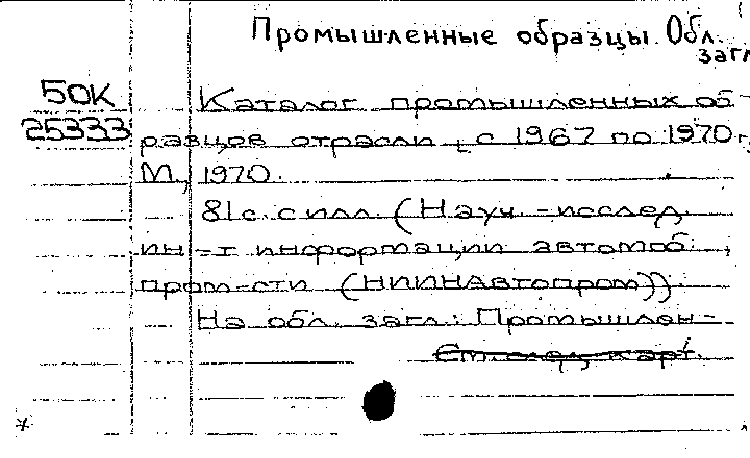 Промышленные образцы. Обл.
загл
50К
25333
Каталог промышленных об-
разцов отрасли [с 1967 по 1970 г.
М., 1970.
81с. с илл. (Науч.-исслед.
ин-т информации автомоб.
пром-сти (НИИНАвтопром)).
На обл. загл.: Промышлен-
См. след. карт.